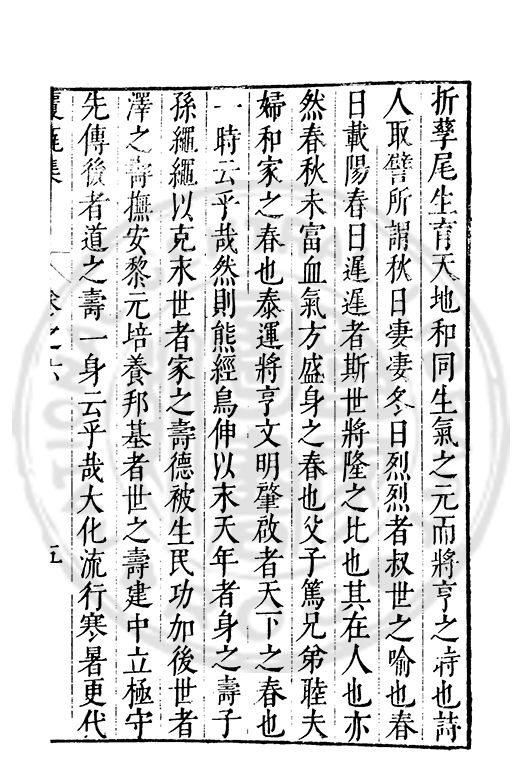 折孳尾生育天地和同生氣之元而將亨之時也詩
人取譬所謂秋日妻妻冬日烈烈者叔世之喻也春
日載陽春日遲遲者斯世將隆之比也其在人也亦
然春秋未富血氣方盛身之春也父子篤兄弟睦夫
婦和家之春也泰運將亨文明肇啟者天下之春也
一時云乎哉然則熊經鳥伸以末天年者身之壽子
孫繩繩以克末世者家之壽德被生民功加後世者
澤之壽撫安黎元培養邦基者世之壽建中立極守
先傳後者道之壽一身云乎哉大化流行寒暑更代
集 卷之六 五